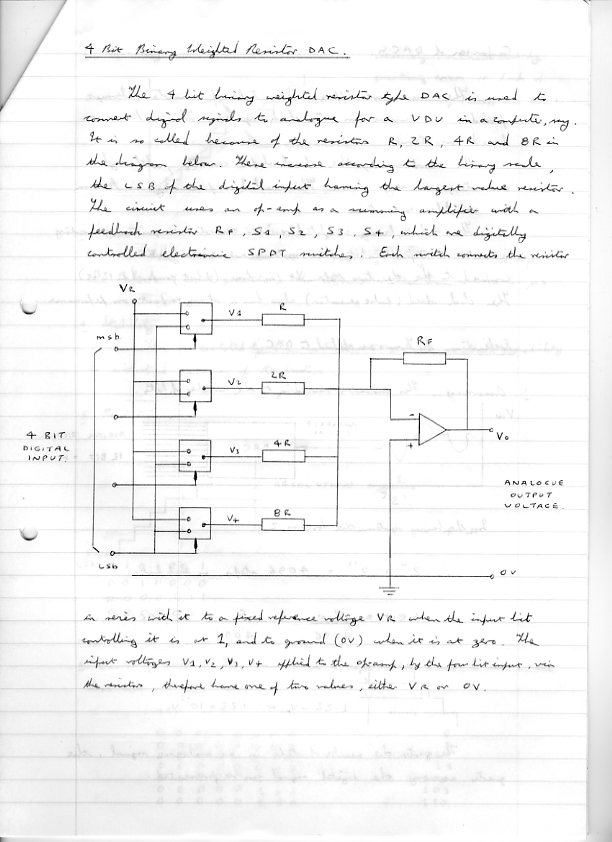 4 Bit Binary Weighted Resistor DAC.
The 4 bit binary weighted resistor type DAC is used to
convert digital signals to analogue for a VDU in a computer, say.
It is so called because of the resistors R, 2R, 4R and 8R in
the diagram below. These increase according to the binary scale,
the LSB of the digital input having the largest value resistor.
The circuit uses an op-amp as a summing amplifier with a
feedback resistor RF, S1, S2, S3, S4, which are digitally
controlled electronic SPDT switches. Each switch connects the resistor
VR
V1
R
msb
RF
V2
2R
-
+
Vo
4 BIT
DIGITAL
INPUT.
V3
4R
ANALOGUE
OUTPUT
VOLTAGE.
V4
8R
Lsb
0V
in series with it to a fixed reference voltage VR when the input bit
controlling it is at 1, and to ground (0V) when it is at zero. The
input voltages V1, V2, V3, V4 applied to the op-amp, by the four bit input, via
the resistors, therefore have one of two values, either VR or 0V.